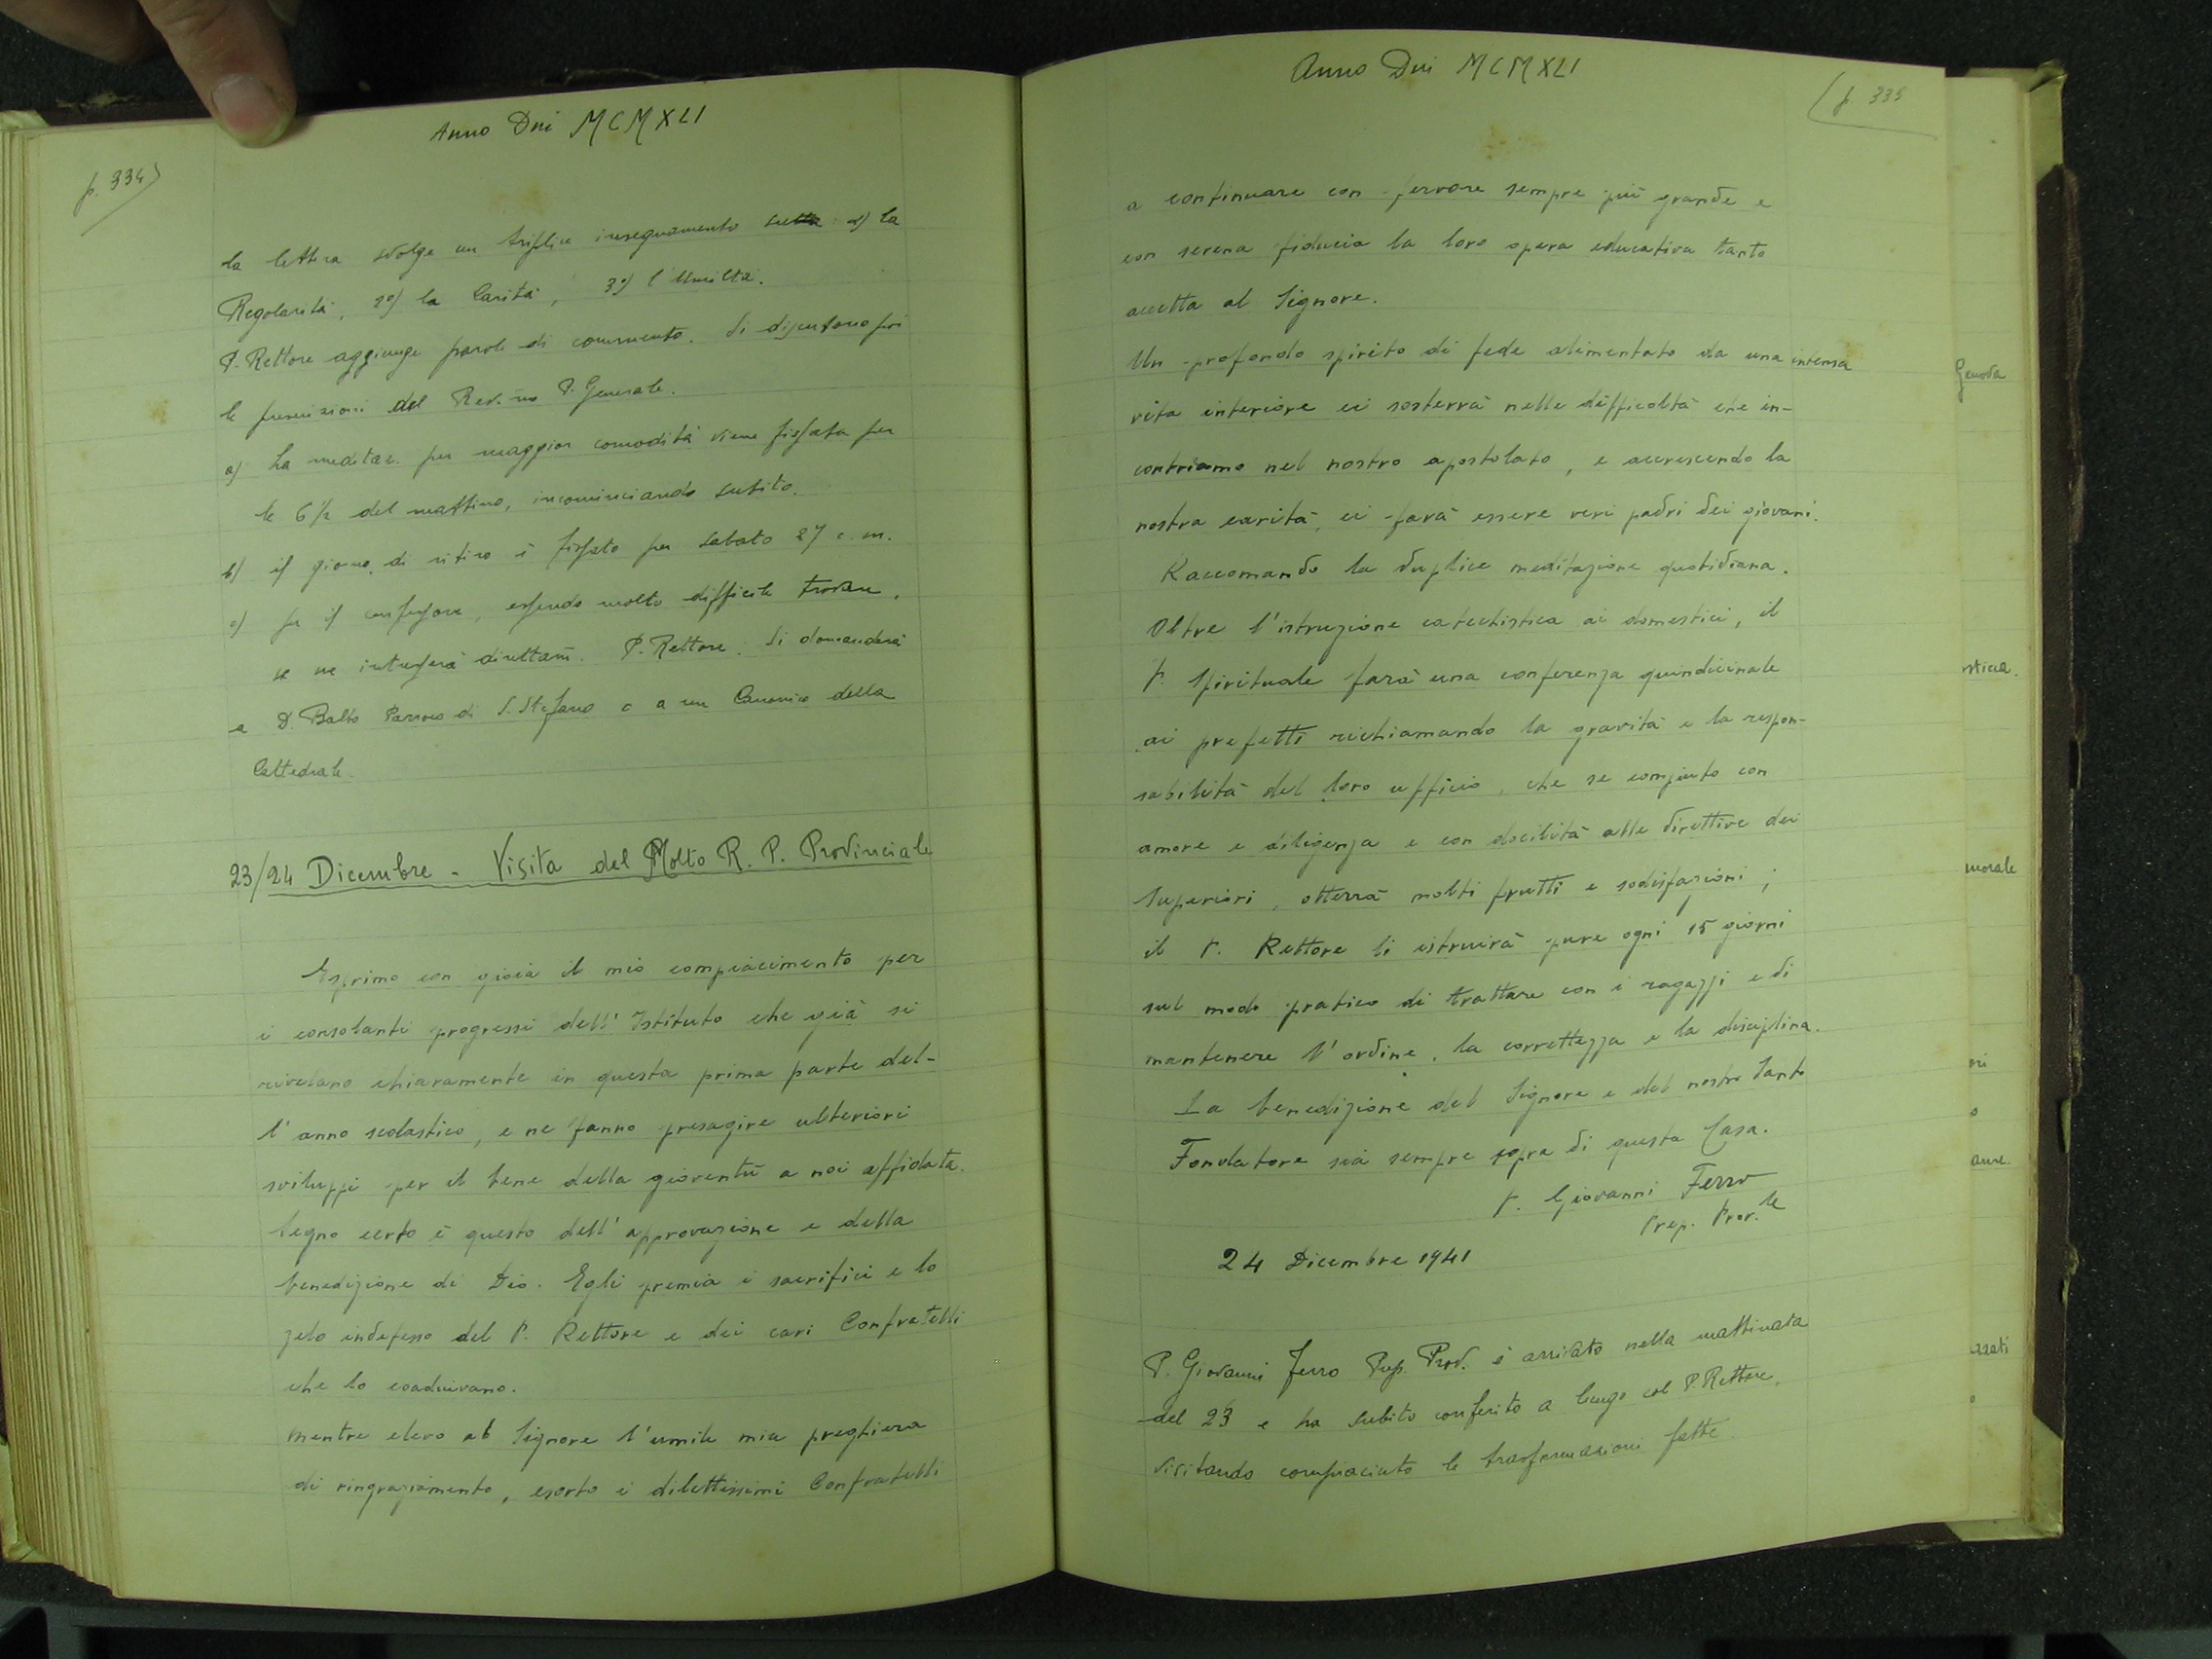 Anno Dni MCMXLI
p. 334)
la lettera svolge un triplice insegnamento la
Regolarità, 2°) la Carità, 3°) l'Umiltà.
P. Rettore aggiunge parole di commento. Si discutono poi
le prescrizioni del Rev.mo P. Generale.
a) La meditaz. per maggior comodità viene fissata per
le 6½ del mattino, incominciando subito.
b) il giorno di ritiro è fissato per sabato 27 c. m.
c) per il confessore, essendo molto difficile trovare,
se ne interesserà direttam. P. Rettore. Si domanderà
a D. Balbo Parroco di S. Stefano o a un Canonico della
Cattedrale.
23/24 Dicembre - Visita del Molto R. P. Provinciale
Esprimo con gioia il mio compiacimento per
i consolanti progressi dell'Istituto che già si
rivelano chiaramente in questa prima parte del-
l'anno scolastico, e ne fanno presagire ulteriori
sviluppi per il bene della gioventù a noi affidata.
Segno certo è questo dell'approvazione e della
benedizione di Dio. Egli premia i sacrifici e lo
zelo indefesso del P. Rettore e dei cari Confratelli
che lo coadiuvano.
Mentre elevo al Signore l'umile mia preghiera
di ringraziamento, esorto i dilettissimi Confratelli
Anno Dni MCMXLI
(p. 335
a continuare con fervore sempre più grande e
con serena fiducia la loro opera educativa tanto
accetta al Signore.
Un profondo spirito di fede alimentato da una intensa
vita interiore ci sosterrà nelle difficoltà che in-
contriamo nel nostro apostolato, e accrescendo la
nostra carità, ci farà essere veri padri dei giovani.
Raccomando la duplice meditazione quotidiana.
Oltre l'istruzione catechistica ai domestici, il
P. Spirituale farà una conferenza quindicinale
ai prefetti richiamando la gravità e la respon-
sabilità del loro ufficio, che se compiuto con
amore e diligenza e con docilità alle direttive dei
Superiori, otterrà molti frutti e sodisfazioni;
il P. Rettore li istruirà pure ogni 15 giorni
sul modo pratico di trattare con i ragazzi e di
mantenere l'ordine, la correttezza e la disciplina.
La benedizione del Signore e del nostro Santo
Fondatore sia sempre sopra di questa Casa.
P. Giovanni Ferro
Prep. Prov.le
24 Dicembre 1941
P. Giovanni Ferro Prep. Prov. è arrivato nella mattinata
del 23 e ha subito conferito a lungo col P. Rettore,
visitando compiaciuto le trasformazioni fatte
Genova
stica.
morale